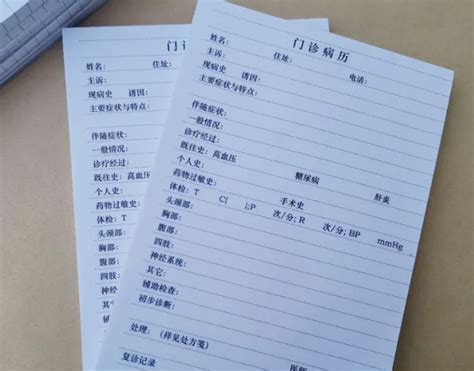 门诊病历
姓名： 住址： 电话：
主诉：
现病史 诱因：
主要症状与特点：
伴随症状：
一般情况：
诊疗经过：
既往史：高血压 糖尿病 肝炎
个人史：
药物过敏史： 手术史
体检：T C[ ];P 次/分；R 次/分；BP mmHg
头颈部：
胸部：
腹部：
四肢：
神经系统：
其它：
辅助检查：
初步诊断：
处理：（祥见处方笺）
复诊记录 医师
门诊
姓名： 住址：
主诉：
现病史 诱因：
主要症状与特点：
伴随症状：
一般情况：
诊疗经过：
既往史：高血压
个人史：
药物过敏史：
体检：T
头颈部：
胸部：
腹部：
四肢：
神经系统：
其它：
辅助检查：
初步诊断：